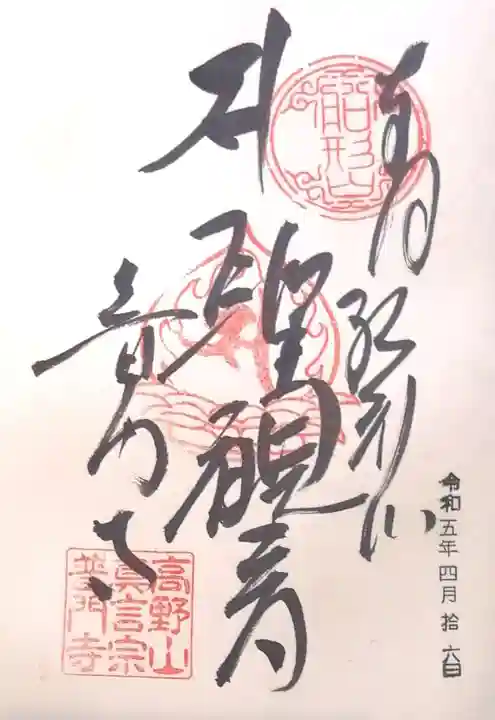 船形山
聖観音
普門寺
高野山
真言宗
普門寺
令和五年四月拾六日